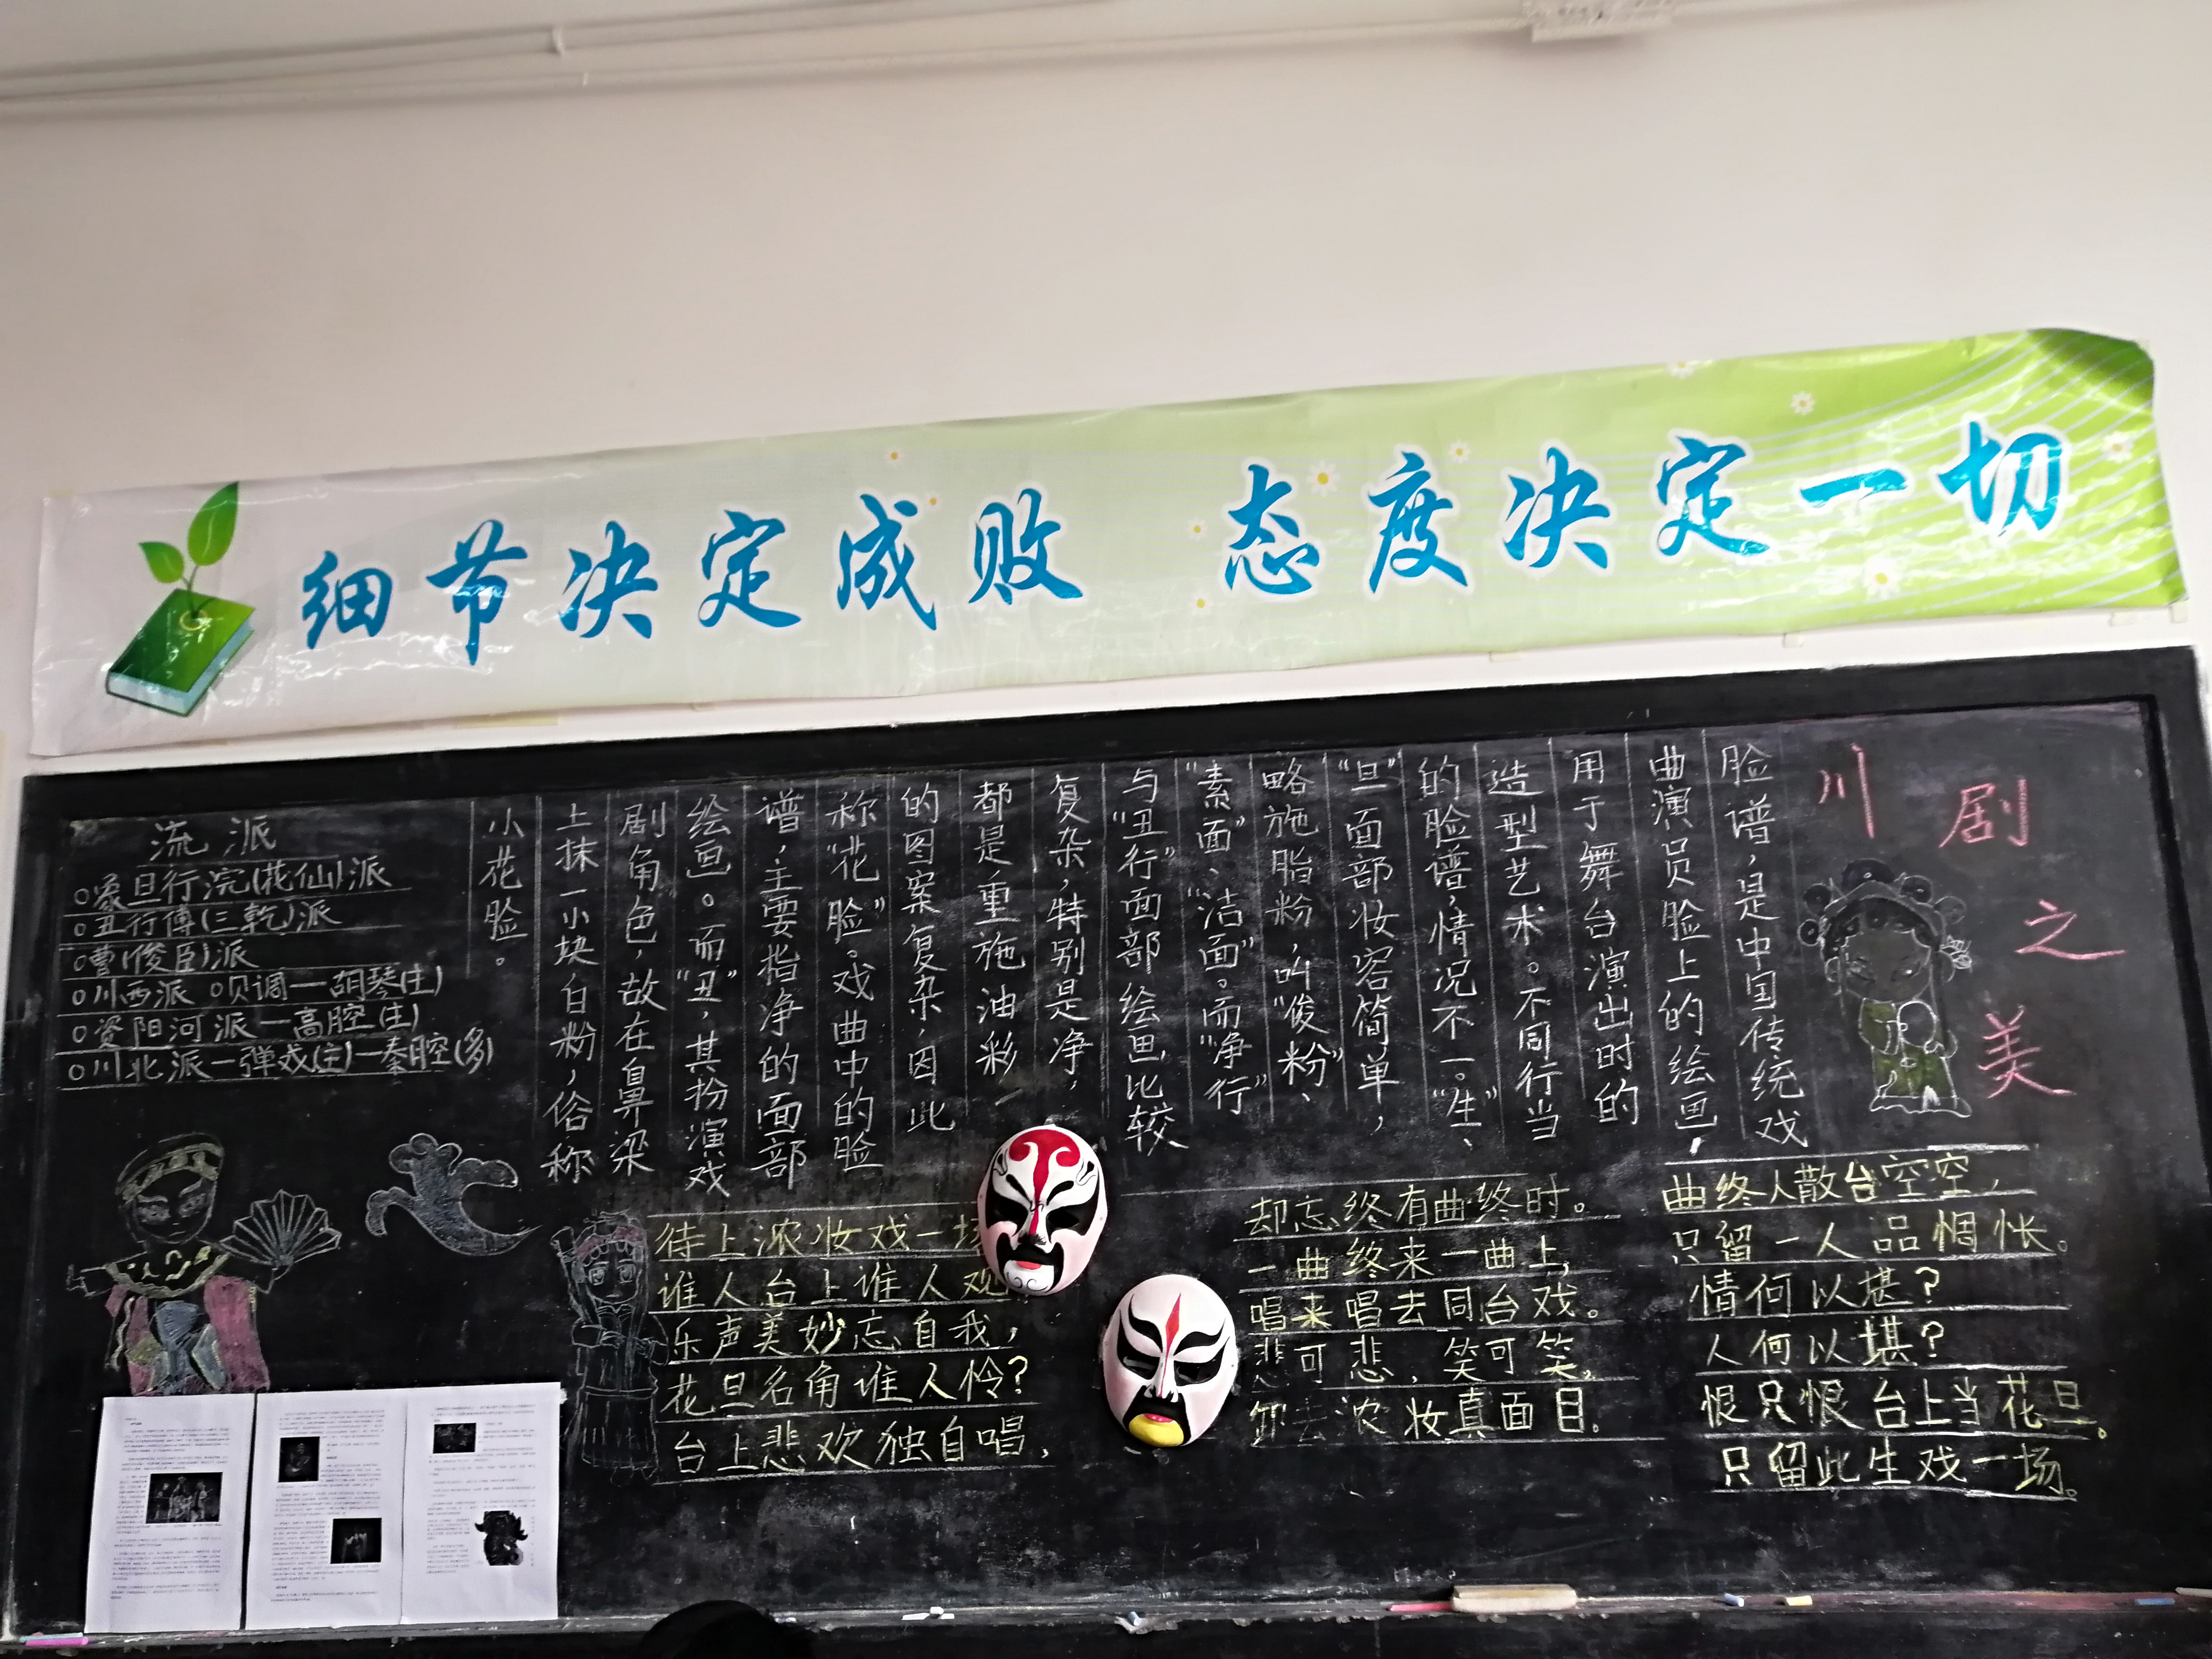 细节决定成败 态度决定一切
川剧之美
脸谱，是中国传统戏
曲演员脸上的绘画，
用于舞台演出时的
造型艺术。不同行当
的脸谱，情况不一。“生”、
“旦”面部妆容简单，
略施脂粉，叫“俊粉”、
“素面”、“洁面”。而“净行”
与“丑行”面部绘画比较
复杂，特别是净，
都是重施油彩
的图案复杂，因此
称“花脸”。戏曲中的脸
谱，主要指净的面部
绘画。而“丑”，其扮演戏
剧角色，故在鼻梁
上抹一小块白粉，俗称
小花脸。
流派
旦行浣(花仙)派
丑行傅(三乾)派
曹(俊臣)派
川西派 坝调—胡琴(主)
资阳河派—高腔(主)
川北派—弹戏(主)—秦腔(多)
待上浓妆戏一场
谁人台上谁人观
乐声美妙忘自我，
花旦名角谁人怜？
台上悲欢独自唱，
却忘终有曲终时。
一曲终来一曲上，
唱来唱去同台戏。
悲可悲，笑可笑，
卸去浓妆真面目。
曲终人散台空空，
只留一人品惆怅。
情何以堪？
人何以堪？
恨只恨台上当花旦。
只留此生戏一场。